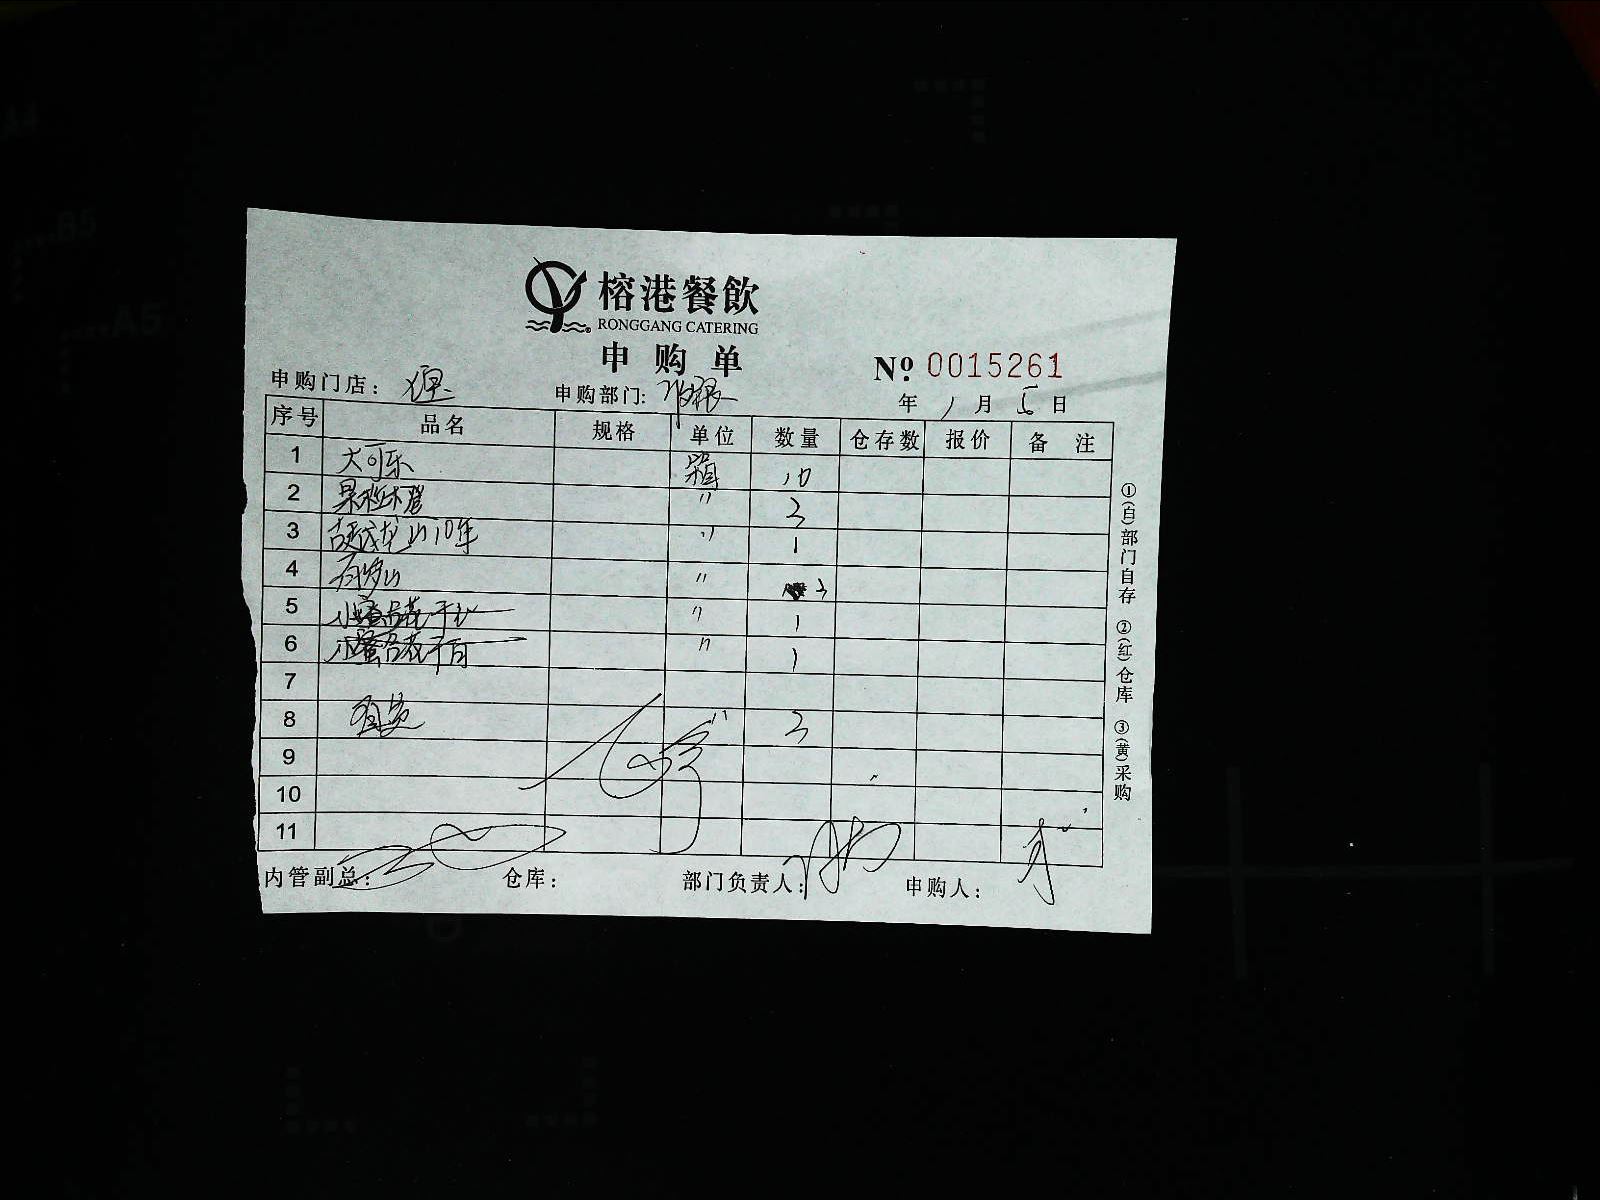 榕港餐飲
RONGGANG CATERING
申购单
№ 0015261
申购门店： 申购部门: 年 1 月 5 日
序号 品名 规格 单位 数量 仓存数 报价 备注
1 大可乐 箱 10
2 果粒木登 〃 3
3 古越龙山10年 〃 1
4 〃 3
5 小 干红 〃 1
6 小 干白 〃 1
7
8 〃 3
9
10
11
内管副总： 仓库： 部门负责人： 申购人：
①(白)部门自存 ②(红)仓库 ③(黄)采购
A5
B5